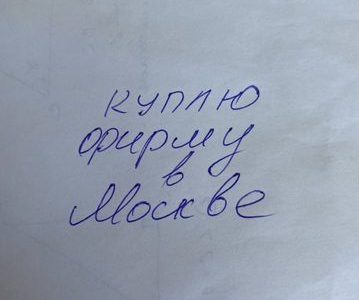 куплю
фирму
в
Москве